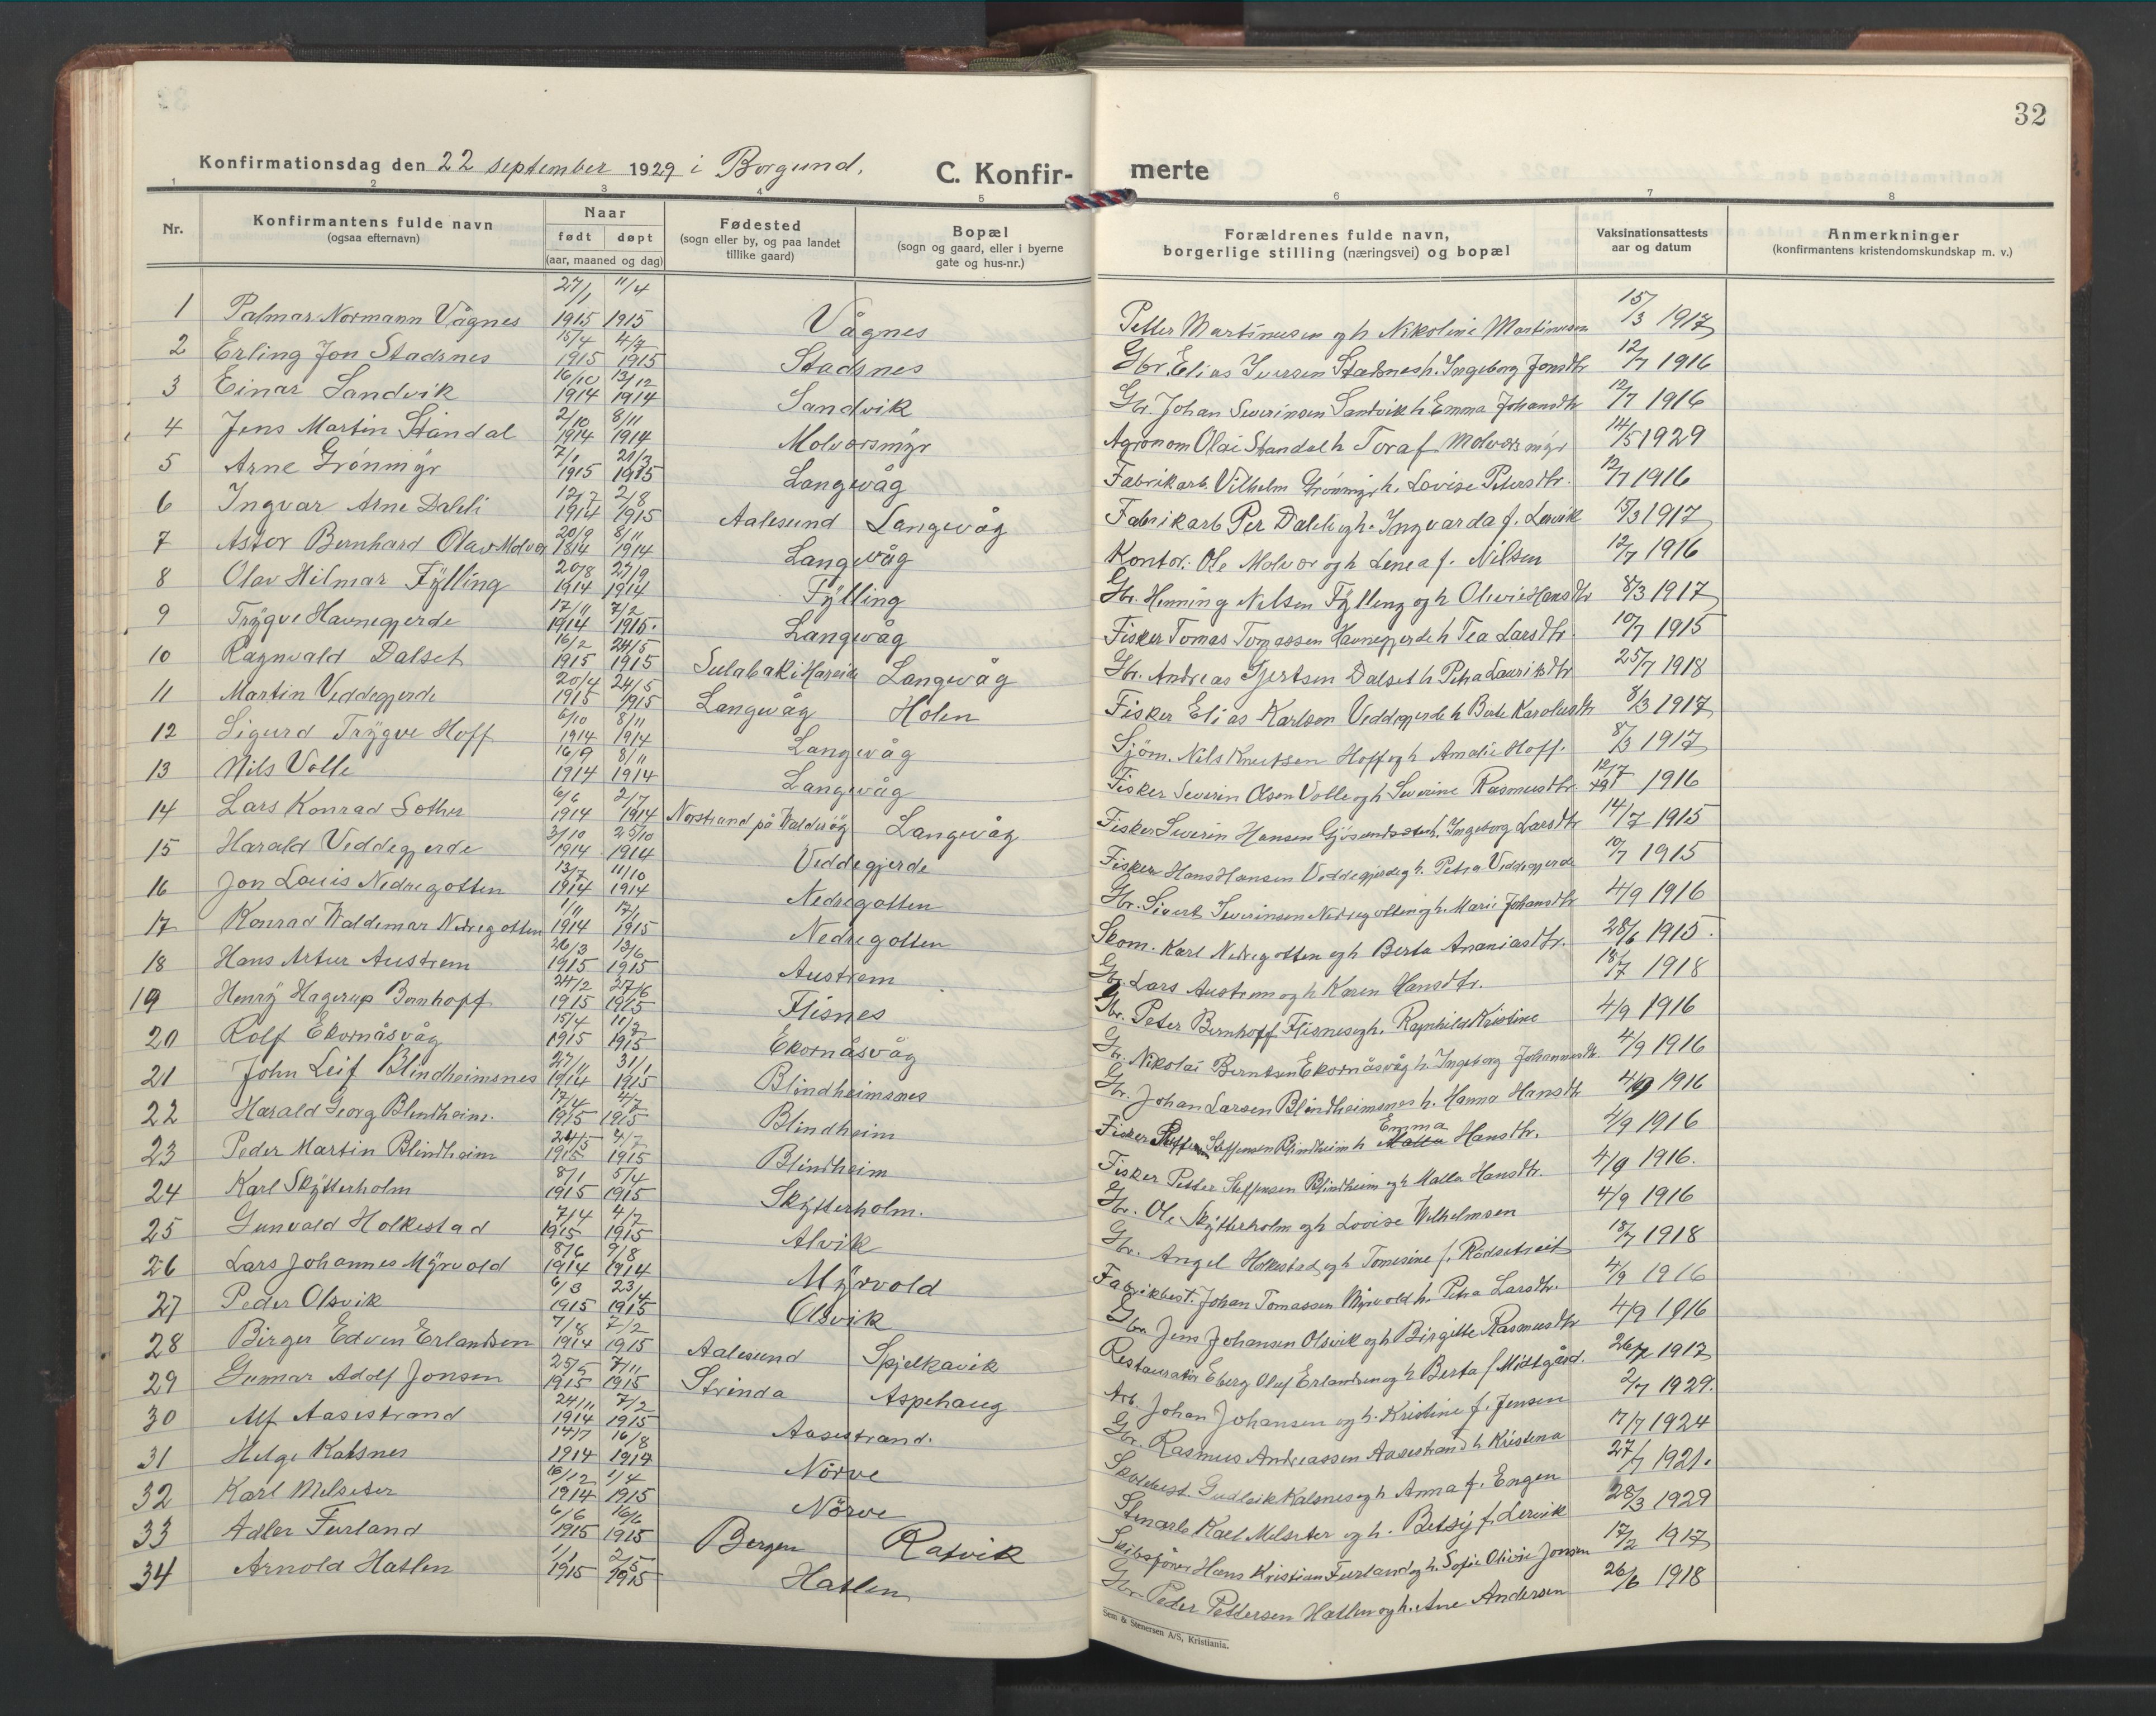 32
Konfirmationsdag den 22 september 1929 i Borgund. C. Konfir- merte
1 2 3 4 5 6 7 8
Nr. Konfirmantens fulde navn (ogsaa efternavn) Naar født døpt (aar, maaned og dag) Fødested (sogn eller by, og paa landet tillike gaard) Bopæl (sogn og gaard, eller i byerne gate og hus-nr.) Forældrenes fulde navn, borgerlige stilling (næringsvei) og bopæl Vaksinationsattests aar og datum Anmerkninger (konfirmantens kristendomskundskap m. v.)
1 Palmar Normann Vågnes 27/1 1915 11/4 1915 Vågnes Petter Martinusen og h Nikoline Martinusen 15/3 1917
2 Erling Jon Stadsnes 15/4 1915 4/7 1915 Stadsnes Gbr. Elias Iversen Stadsnes h. Ingeborg Jonsdtr 12/7 1916
3 Einar Sandvik 16/10 1914 13/12 1914 Sandvik Gbr. Johan Severinsen Sandvik h Emma Johansdtr 12/7 1916
4 Jens Martin Standal 2/10 1914 8/11 1914 Molværsmyr Agronom Olai Standal h Tora f Molværsmyr 14/5 1929
5 Arne Grönmyr 7/1 1915 21/3 1915 Langevåg Fabrikarb. Vilhelm Grönmyr h. Lovise Petersdtr. 12/7 1916
6 Ingvar Arne Dahli 12/7 1914 2/8 1915 Aalesund Langevåg Fabrikarb Per Dahli og h. Ingvarda f. Lervik 15/3 1917
7 Astor Bernhard Olav Molvær 20/9 1814 8/11 1914 Langevåg Kontor. Ole Molvær og h Lenea f. Nilsen 12/7 1916
8 Olav Hilmar Fylling 20/8 1914 27/9 1914 Fylling Gbr. Henning Nelsen Fylling og h Olivie Hansdtr 8/3 1917
9 Trygve Havnegjerde 17/11 1914 7/2 1915. Langevåg Fisker Tomas Tomassen Havnegjerde h Tea Larsdtr. 10/7 1915
10 Ragnvald Dalset 16/2 1915 24/5 1915 Sulabak i Hareide Langevåg Gbr. Andreas Gjertsen Dalset h Petra Lauritsdtr 25/7 1918
11 Martin Veddegjerde 20/4 1915 24/5 1915 Langevåg Holen Fisker Elias Karlsen Veddegjerde h Berte Karolusdtr 8/3 1917
12 Sigurd Trygve Hoff 6/10 1914 8/11 1914 Langevåg Sjöm. Nils Knutsen Hoff og h Amalie Hoff. 8/3 1917
13 Nils Volle 16/9 1914 8/11 1914 Langevåg Fisker Severin Olsen Volle og h Severine Rasmusdtr. 12/7 1916
14 Lars Konrad Sother 6/6 1914 2/7 1914 Norstrand på Walderöy Langevåg Fisker Severin Hansen h. Ingeborg Larsdtr 14/7 1915
15 Harald Veddegjerde 3/10 1914 25/10 1914 Veddegjerde Fisker Hans Hansen Veddegjerde og h. Petra Veddegjerde 10/7 1915
16 Jon Louis Nedregotten 13/7 1914 11/10 1914 Nedregotten Gbr. Sivert Severinsen Nedregotten og h. Marie Johansdtr 4/9 1916
17 Konrad Waldemar Nedregotten 1/11 1914 17/1 1915 Nedregotten Skom. Karl Nedregotten og h Berta Ananiasdtr. 28/6 1915.
18 Hans Artur Austrem 26/3 1915 13/6 1915 Austrem Gbr. Lars Austrem og h Karen Hansdtr. 18/7 1918
19 Henry Hagerup Bernhoff 24/2 1915 27/6 1915 Flisnes Gbr. Peter Bernhoff Flisnes og h. Ragnhild Kristine 4/9 1916
20 Rolf Ekornåsvåg 15/4 1915 11/7 1915 Ekornåsvåg Gbr. Nikolai Berntsen Ekornåsvåg h. Ingeborg Johannesdtr. 4/9 1916
21 John Leif Blindheimsnes 27/11 1914 31/1 1915 Blindheimsnes Gbr. Johan Larsen Blindheimsnes h. Hanna Hansdtr 4/9 1916
22 Harald Georg Blindheim. 17/4 1915 4/7 1915 Blindheim Fisker Steffen Steffensen Blindheim h Emma Hansdtr. 4/9 1916
23 Peder Martin Blindheim 24/5 1915 4/7 1915 Blindheim Fisker Petter Steffensen Blindheim og h Malla Hansdtr. 4/9 1916.
24 Karl Skytterholm 8/1 1915 5/4 1915 Skytterholm. Gbr. Ole Skytterholm og h Lovise Wilhelmsen 4/9 1916
25 Gunvald Holkestad 7/4 1915 4/7 1915 Alvik Gbr. Angel Holkestad og h Tomesine f. Rödsetreit 18/7 1918
26 Lars Johannes Myrvold 8/6 1914 9/8 1914 Myrvold Fabrikbest. Johan Tomassen Myrvold h. Petra Larsdtr. 4/9 1916
27 Peder Olsvik 6/3 1915 23/4 1915 Olsvik Gbr Jens Johansen Olsvik og h Birgitte Rasmusdtr 4/9 1916
28 Birger Edven Erlandsen 7/8 1914 7/2 1915 Aalesund Spjelkavik Restauratör Eberg Oluf Erlandsen og h Berta f Midtgård. 26/7 1917
29 Gunnar Adolf Jonsen 25/5 1915 7/11 1915 Strinda Aspehaug Arb. Johan Johansen og h. Kristine f. Jensen 2/7 1929.
30 Alf Aasestrand 24/11 1914 7/2 1915 Aasestrand. Gbr. Rasmus Andreassen Aasestrand h Kristena 17/7 1924
31 Helge Kalsnes 14/7 1914 16/8 1914 Nörve Skolebest. Gudleik Kalsnes og h Anna f. Engen 27/7 1921.
32 Karl Melseter 16/12 1914 1/4 1915 Nörve Stenarb Karl Melseter og h. Betsy f. Lervik 28/3 1929
33 Adler Furland 6/6 1915 16/6 1915 Bergen Ratvik Skibsförer Hans Kristian Furland og h. Sofie Olivie Jonsen 17/2 1917
34 Arnold Hatlen 1/1 1915 2/5 1915 Hatlen Gbr. Peder Pettersen Hatlen og h. Ane Andersen 26/6 1918
Sem & Stenersen A/S, Kristiania.